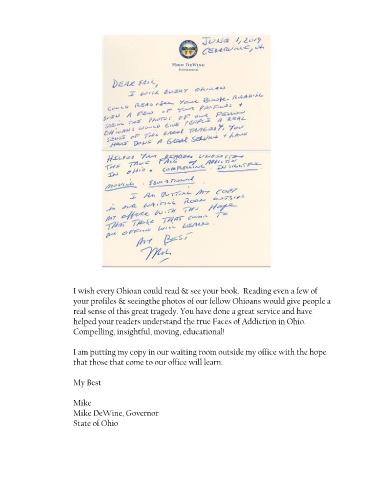 JUNE 1, 2019
CEDARVILLE, OH
MIKE DEWINE
GOVERNOR
DEAR ERIC,
I WISH EVERY OHIOAN
COULD READ & SEE YOUR BOOK. READING
EVEN A FEW OF YOUR PROFILES &
SEEING THE PHOTOS OF OUR FELLOW
OHIOANS WOULD GIVE PEOPLE A REAL
SENSE OF THIS GREAT TRAGEDY. YOU
HAVE DONE A GREAT SERVICE & HAVE
HELPED YOUR READERS UNDERSTAND
THE TRUE FACES OF ADDICTION
IN OHIO. COMPELLING, INSIGHTFUL
MOVING, EDUCATIONAL!
I AM PUTTING MY COPY
IN OUR WAITING ROOM OUTSIDE
MY OFFICE WITH THE HOPE
THAT THOSE THAT COME TO
OUR OFFICE WILL LEARN
MY BEST
Mike
I wish every Ohioan could read & see your book. Reading even a few of
your profiles & seeingthe photos of our fellow Ohioans would give people a
real sense of this great tragedy. You have done a great service and have
helped your readers understand the true Faces of Addiction in Ohio.
Compelling, insightful, moving, educational!
I am putting my copy in our waiting room outside my office with the hope
that those that come to our office will learn.
My Best
Mike
Mike DeWine, Governor
State of Ohio